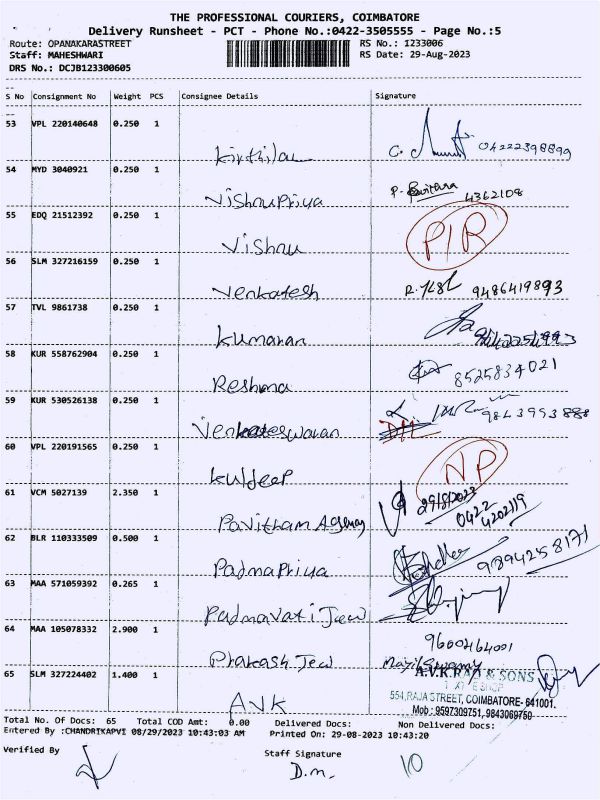 THE PROFESSIONAL COURIERS, COIMBATORE
Delivery Runsheet - PCT - Phone No.:0422-3505555 - Page No.:5
Route: OPANAKARASTREET RS No.: 1233006
Staff: MAHESHWARI RS Date: 29-Aug-2023
DRS No.: DCJB123300605
S No Consignment No Weight PCS Consignee Details Signature
53 VPL 220140648 0.250 1
C. 04222398899
54 MYD 3040921 0.250 1
VishnuPriya P. Pavithra 4362108
55 EDQ 21512392 0.250 1
Vishnu P/R
56 SLM 327216159 0.250 1
Venkatesh 9486419893
57 TVL 9861738 0.250 1
Kumaran
58 KUR 558762904 0.250 1
Reshma 8525834021
59 KUR 530526138 0.250 1
Venkateswaran 9843993888
60 VPL 220191565 0.250 1
Kuldeep NP
61 VCM 5027139 2.350 1
29/8/2023
Pavitham Agency 0422 4202119
62 BLR 110333509 0.500 1
PadmaPriya 9894258171
63 MAA 571059392 0.265 1
Padmavati Jew
64 MAA 105078332 2.900 1
9600464001
Prakash Jew Mayil Swamy
65 SLM 327224402 1.400 1
A.V.K.RAJ & SONS
554,RAJA STREET, COIMBATORE- 641001.
Mob : 9597309751, 9843069750
AVK
Total No. Of Docs: 65 Total COD Amt: 0.00 Delivered Docs: Non Delivered Docs:
Entered By :CHANDRIKAPVI 08/29/2023 10:43:03 AM Printed On: 29-08-2023 10:43:20
Verified By Staff Signature
D.m. 10